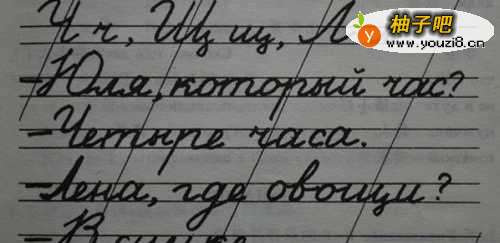 Ч ч, Щ щ, Л
柚子吧
www.youzi8.cn
-Юля, который час?
-Четыре часа.
-Лена, где овощи?
-В сумке.